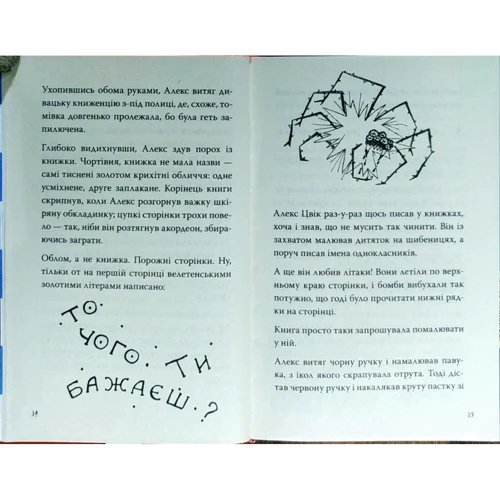 Ухопившись обома руками, Алекс витяг ди-
вацьку книженцію з-під полиці, де, схоже, то-
мівка довгенько пролежала, бо була геть за-
пилючена.
Глибоко видихнувши, Алекс здув порох із
книжки. Чортівня, книжка не мала назви —
самі тиснені золотом крихітні обличчя: одне
усміхнене, друге заплакане. Корінець книги
скрипнув, коли Алекс розгорнув важку шкі-
ряну обкладинку; цупкі сторінки трохи пове-
ло — так, ніби він розтягнув акордеон, збира-
ючись заграти.
Облом, а не книжка. Порожні сторінки. Ну,
тільки от на першій сторінці велетенськими
золотими літерами написано:
ТО
ЧОГО ТИ
БАЖАЄШ?
14
Алекс Цвік раз-у-раз щось писав у книжках,
хоча і знав, що не мусить так чинити. Він із
захватом малював дитяток на шибеницях, а
поруч писав імена однокласників.
А ще він любив літаки! Вони летіли по верх-
ньому краю сторінки, і бомби вибухали так
потужно, що годі було прочитати нижні ряд-
ки на сторінці.
Книга просто таки запрошувала помалювати
у ній.
Алекс витяг чорну ручку і намалював паву-
ка, з ікол якого скрапувала отрута. Тоді діс-
тав червону ручку і накалякав круту пастку зі
15